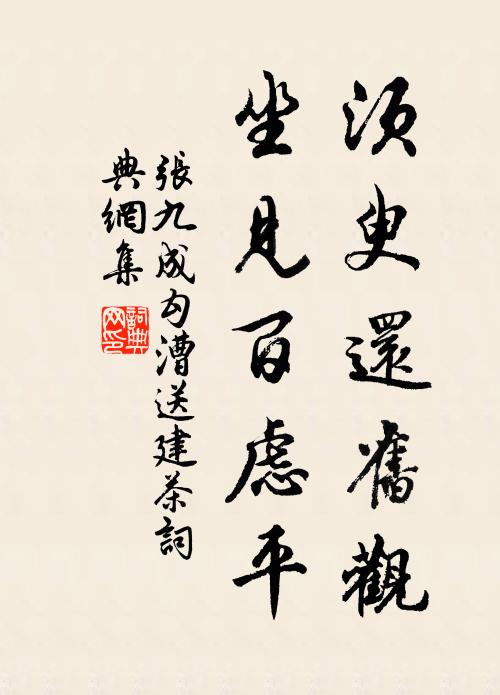 須臾還舊觀
坐見百慮平
張九成勾漕送建茶詞
典網集
詞典
网印